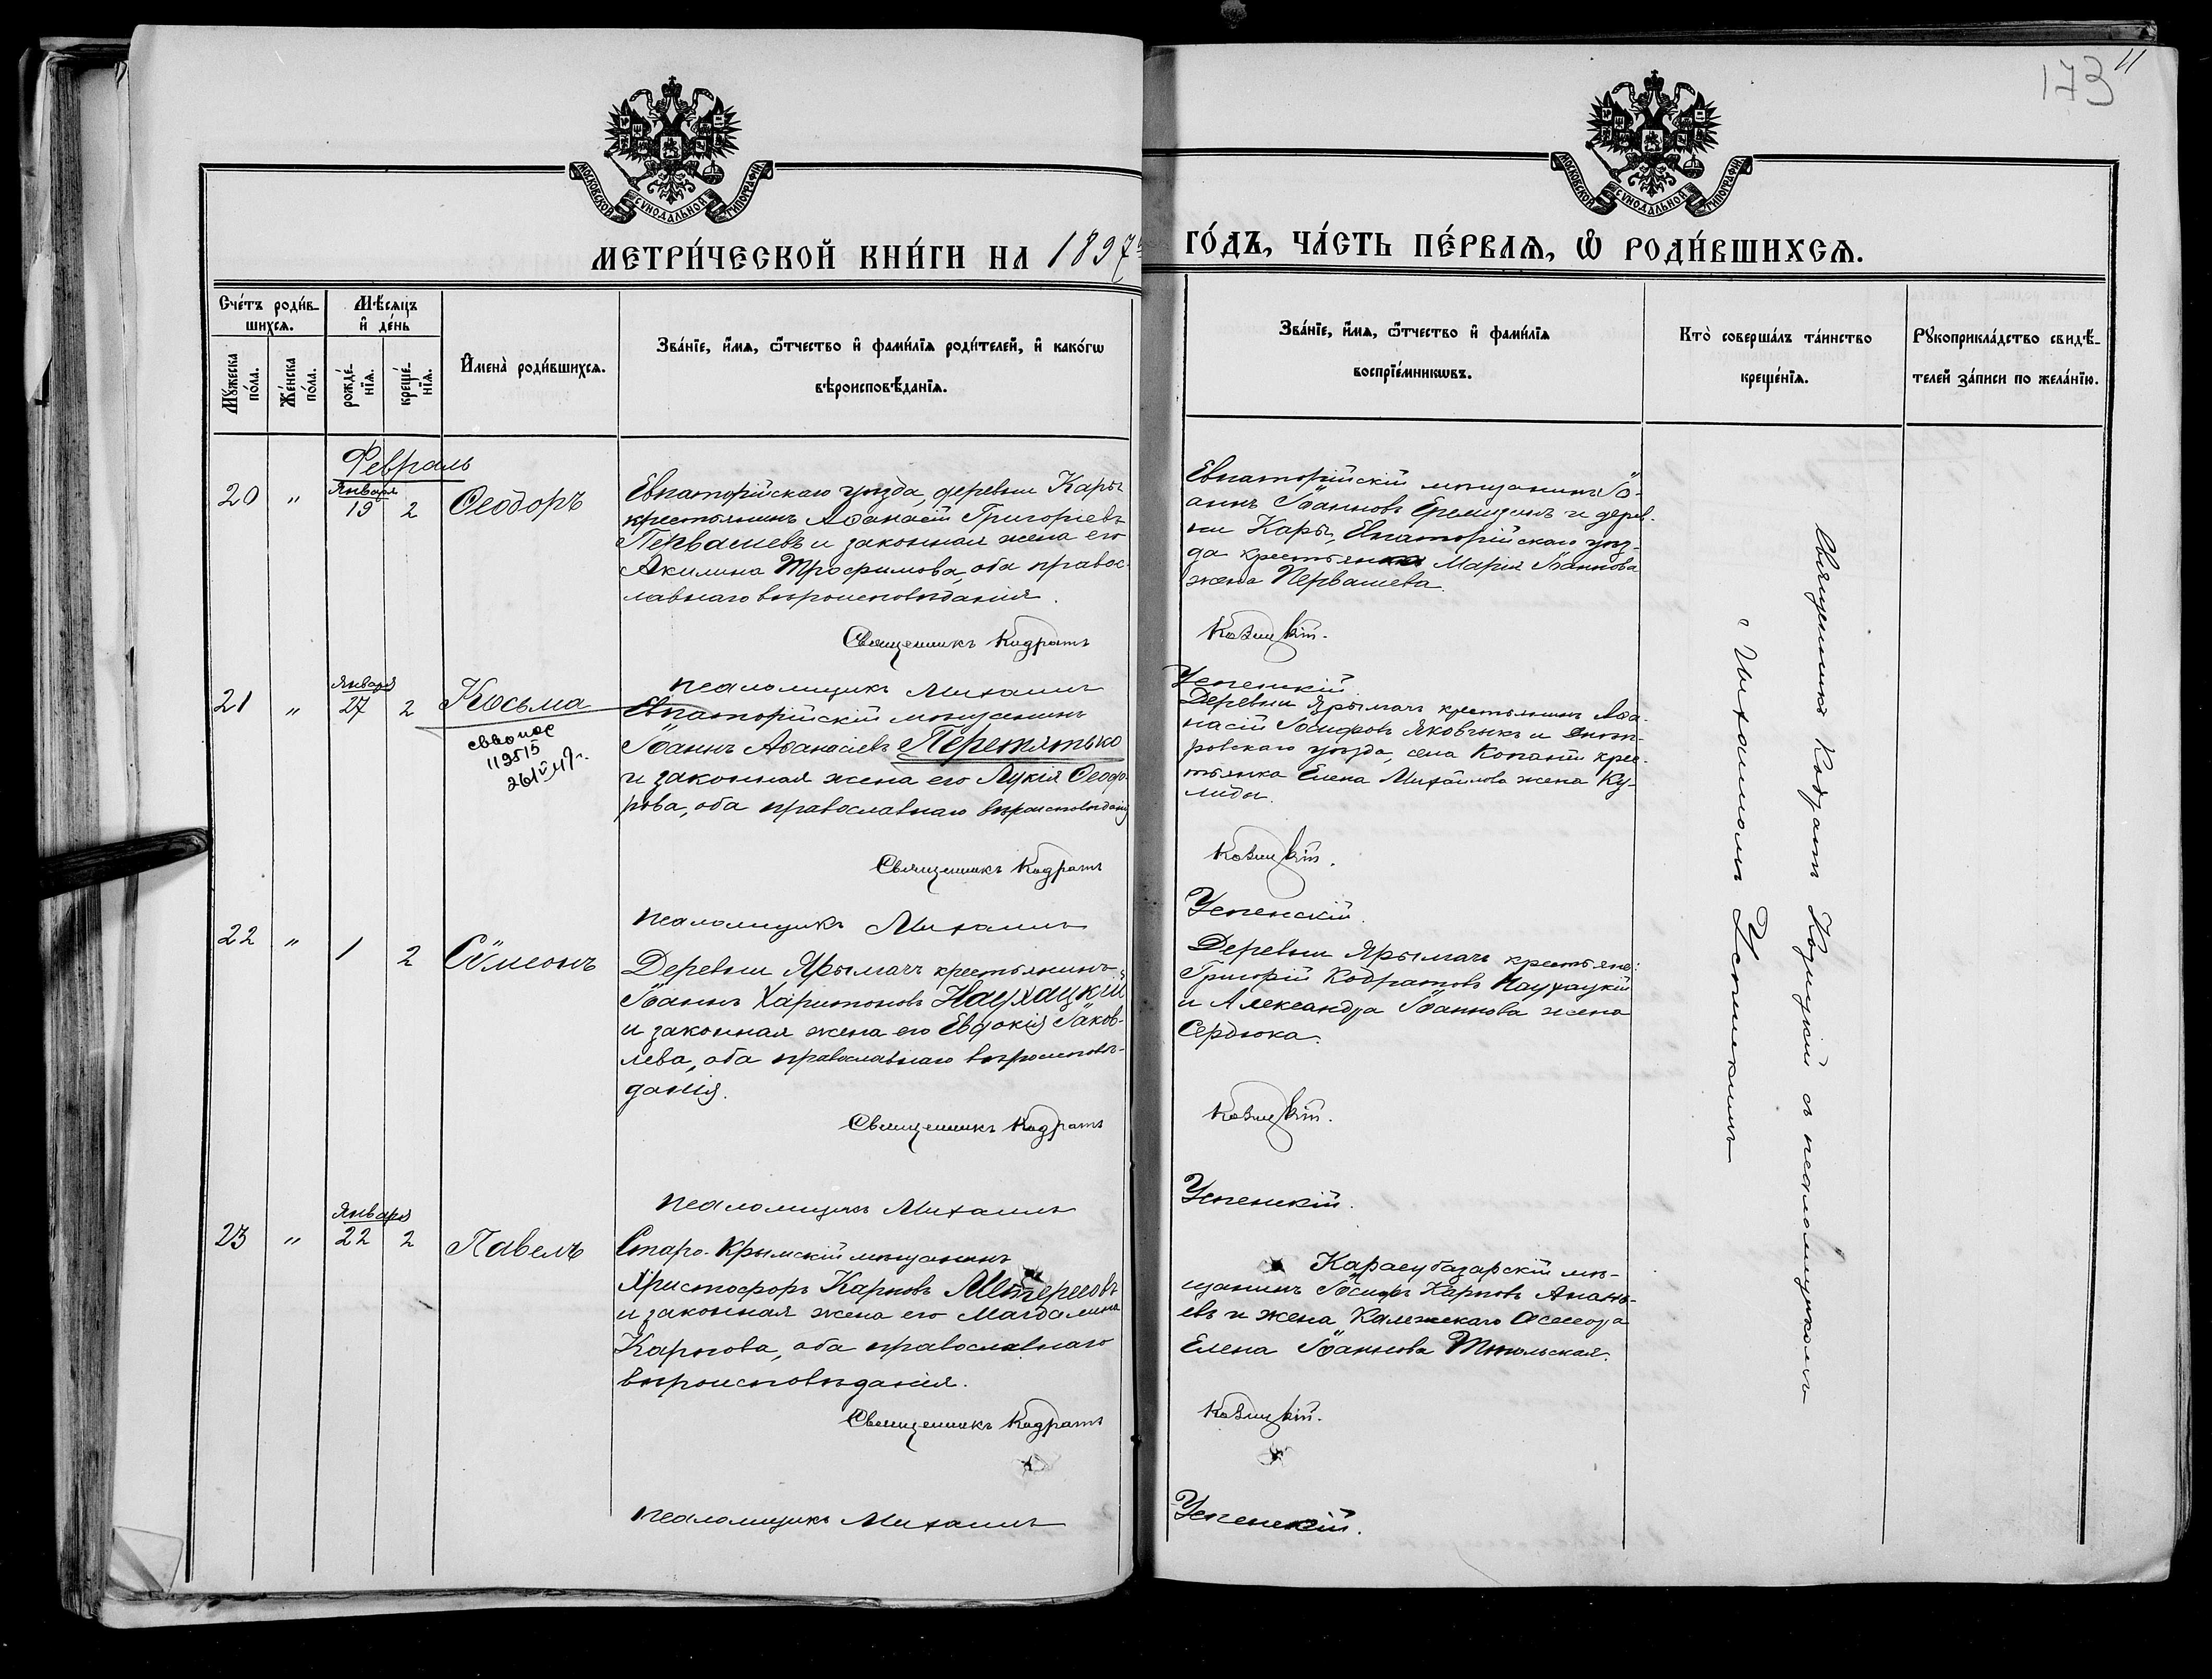 173
11
МОСКОВСКОЙ СѴНОДАЛЬНОЙ ТИПОГРАФІИ
МОСКОВСКОЙ СѴНОДАЛЬНОЙ ТИПОГРАФІИ
МЕТРИ́ЧЕСКОЙ КНИ́ГИ НА 1897й ГО́ДЪ, ЧА́СТЬ ПЕ́РВАѦ, Ѡ҆ РОДИ́ВШИХСѦ.
Сче́тъ роди́в-
шихсѧ.
Мꙋ́жеска по́ла.
Же́нска по́ла.
Мѣ́сѧцъ
и҆ де́нь
рожде́-
нїѧ.
креще́-
нїѧ.
И҆мена̀ роди́вшихсѧ.
Зва́нїе, и҆́мѧ, ѻ҆́тчество и҆ фами́лїѧ роди́телей, и҆ како́гѡ
вѣроисповѣ́данїѧ.
Зва́нїе, и҆́мѧ, ѻ҆́тчество и҆ фами́лїѧ
воспрїе́мникѡвъ.
Кто̀ соверша́лъ та́инство
креще́нїѧ.
Рꙋкоприкла́дство свидѣ́-
телей за́писи по жела́нїю.
Февраль
20 " Января 19 2 Ѳеодоръ
Евпаторійскаго уѣзда, деревни Кары
крестьянинъ Аѳанасій Григоріевъ
Первашевъ и законная жена его
Акилина Трофимова, оба правос-
лавнаго вѣроисповѣданія.
Священникъ Кодратъ
Псаломщикъ Михаилъ
Евпаторійскій мѣщанинъ Іо-
аннъ Іоанновъ Еремизинъ и дерев-
ни Кары, Евпаторійскаго уѣз-
да крестьянка Марія Іоаннова
жена Первашева.
Козицкій.
Успенскій
21 " Января 27 2 Косьма
сввопос
119515
26/V 47г.
Евпаторійскій мѣщанинъ
Іоаннъ Аѳанасіевъ Перетятько
и законная жена его Лукія Ѳеодо-
рова, оба православнаго вѣроисповѣданія
Священникъ Кодратъ
Псаломщикъ Михаилъ
Деревни Ярылгачъ крестьянинъ Аѳа-
насій Іосифовъ Яковчыкъ и Днѣп-
ровскаго уѣзда, села Копаній крес-
тьянка Елена Михайлова жена Ку-
лиды.
Козицкій.
Успенскій.
22 " 1 2 Сѵмеонъ
Деревни Ярылгачъ крестьянинъ
Іоаннъ Харитоновъ Наухацкій
и законная жена его Евдокія Іаков-
лева, оба православнаго вѣроисповѣ-
данія.
Священникъ Кодратъ
Псаломщикъ Михаилъ
Деревни Ярылгачъ крестьяне:
Григорій Кодратовъ Наухацкій
и Александра Іоаннова жена
Сердюка.
Козицкій.
Успенскій.
23 " Января 22 2 Павелъ
Старо-Крымскій мѣщанинъ
Христофоръ Карповъ
и законная жена его Магдалина
Карпова, оба православнаго
вѣроисповѣданія.
Священникъ Кодратъ
Псаломщикъ Михаилъ
Карасубазарскій мѣ-
щанинъ Іосифъ Карповъ Анань-
евъ и жена
Елена Іоаннова
Козицкій.
Успенскій.
Священникъ Кодратъ Козицкій съ псаломщикомъ
Михаиломъ Успенскимъ